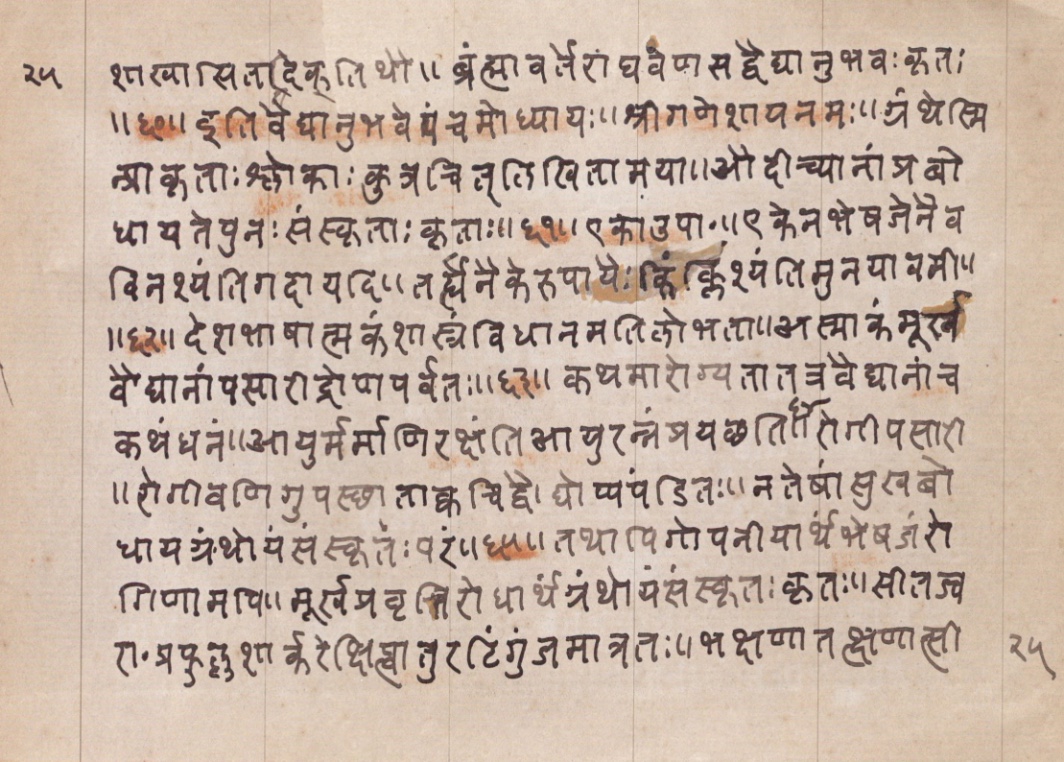 २५ शाखासितादिकृतिथौ॥ ब्रंह्मावर्तेराघवेणसद्वैद्यानुभवःकृतः
॥६०॥ इतिवैद्यानुभवेपंचमोध्यायः॥श्रीगणेशायनमः॥ग्रंथेस्मि
न्प्राकृताःश्लोकाःकुत्रचित्लिखितामया॥औदीच्यानांप्रबो
धायतेपुनःसंस्कृताःकृताः॥६१॥एकांउपा॰॥एकेनभेषजेनैव
विनश्यंतिगदायदि॥तर्ह्यनैकैरुपायैःकिंक्लिश्यंतिमुनयावमी॥
॥६२॥देशभाषात्मकंशास्त्रंविधानमतिलोभता॥अस्माकंमूर्ख
वैद्यानांपसारीद्रोणपर्वतः॥६३॥कथमारोग्यतातत्रवैद्यानांच
कथंधनं॥आयुर्मर्माणिरक्षंतिआयुरन्नंप्रयछतिरोगीपसारी
॥रोगीवणिगुपस्छाताक्वचिद्वैद्योप्यपंडितः॥नतेषांसुखबो
धायग्रंथोयंसंस्कृतःपरं॥६५॥तथापिगोपनीयार्थभेषजंरो
गिणामपि॥मूर्खप्रवृत्तिरोधार्थंग्रंथोयंसंस्कृतःकृतः॥सीतज्व
रा॰प्रफुल्लशार्करेक्षिप्त्वातुरटिंगुंजमात्रतः॥भक्षणातत्क्षणात्सी २५